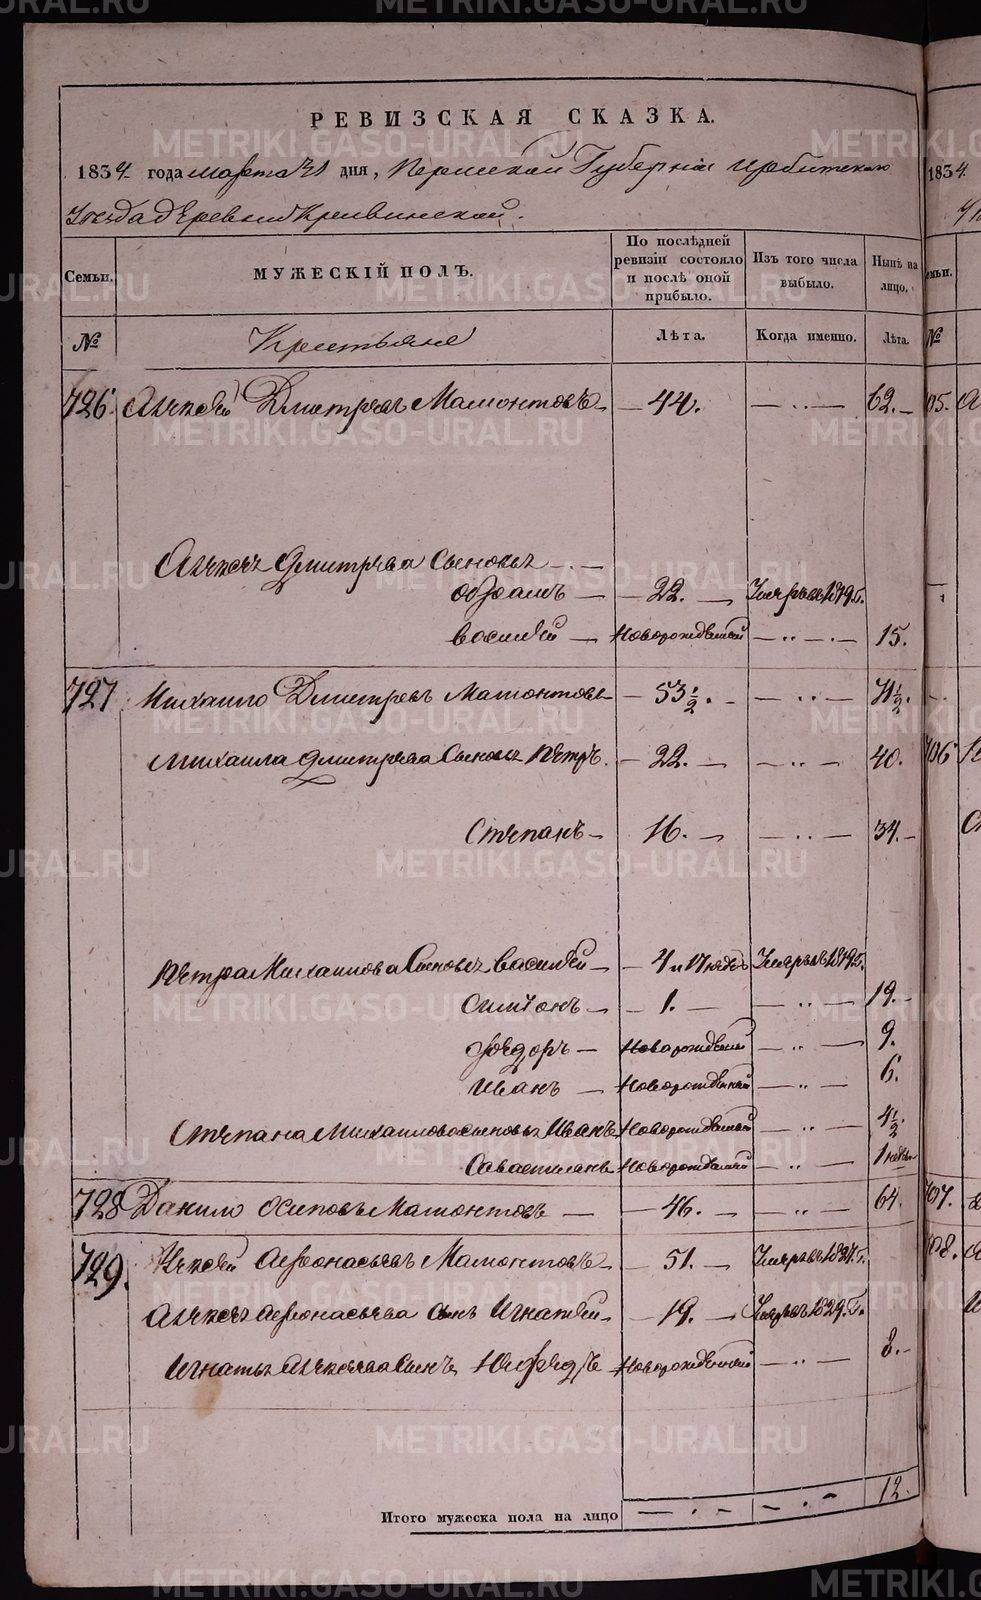 РЕВИЗСКАЯ СКАЗКА.
1834 года марта 31 дня, Пермской Губернии Ирбитскаго
Уезда деревни Кривинской.
Семьи. МУЖЕСКІЙ ПОЛЪ. По послѣдней ревизіи состояло и послѣ оной прибыло. Изъ того числа выбыло. Нынѣ на лицо.
№ Крестьяне Лѣта. Когда именно. Лѣта.
726. Алексей Дмитревъ Мамонтовъ 44. 62.
Алексея Дмитрева Сыновья
Абрамъ 22. Умеръ въ 1819 г.
Василей Новорожденный 15.
727 Михаило Дмитревъ Мамонтовъ 53 1/2. 71 1/2.
Михаила Дмитрева Сыновья Петръ. 22. 40.
Степанъ 16. 34.
Петра Михаилова Сыновья Василей 4 и 17 недель Умеръ въ 1819 г.
Симионъ 1. 19.
Федоръ Новорожденный 9.
Иванъ Новорожденный 6.
Степана Михаилова сыновья Иванъ Новорожденный 4 1/2
Савастиянъ Новорожденный 1 недель
728 Данило Осиповъ Мамонтовъ 46. 64.
729. Алексей Афонасьевъ Мамонтовъ 51. Умеръ въ 1827 г.
Алексея Афонасьева сынъ Игнатей 19. Умеръ въ 1829. г.
Игнатья Алексеева Сынъ Нифедъ Новорожденный 8.
Итого мужеска пола на лицо 12.
1834.
№
METRIKI.GASO-URAL.RU